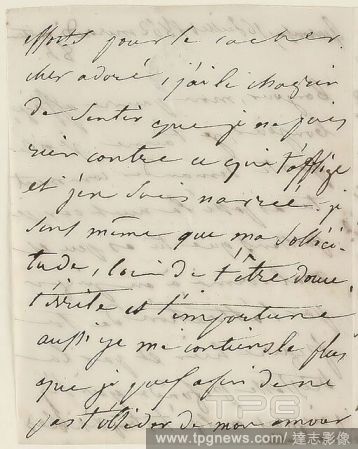 efforts pour le cacher.
cher adoré, j'ai le chagrin
de sentir que je ne puis
rien contre ce qui t'afflige
et j'en suis navrée. je
sens même que ma sollici-
tude, loin de t'être douce,
t'irrite et t'importune
aussi je me contiens le plus
que je peux afin de ne
pas t'obséder de mon amour
TPG
www.tpgnews.com/達志影像